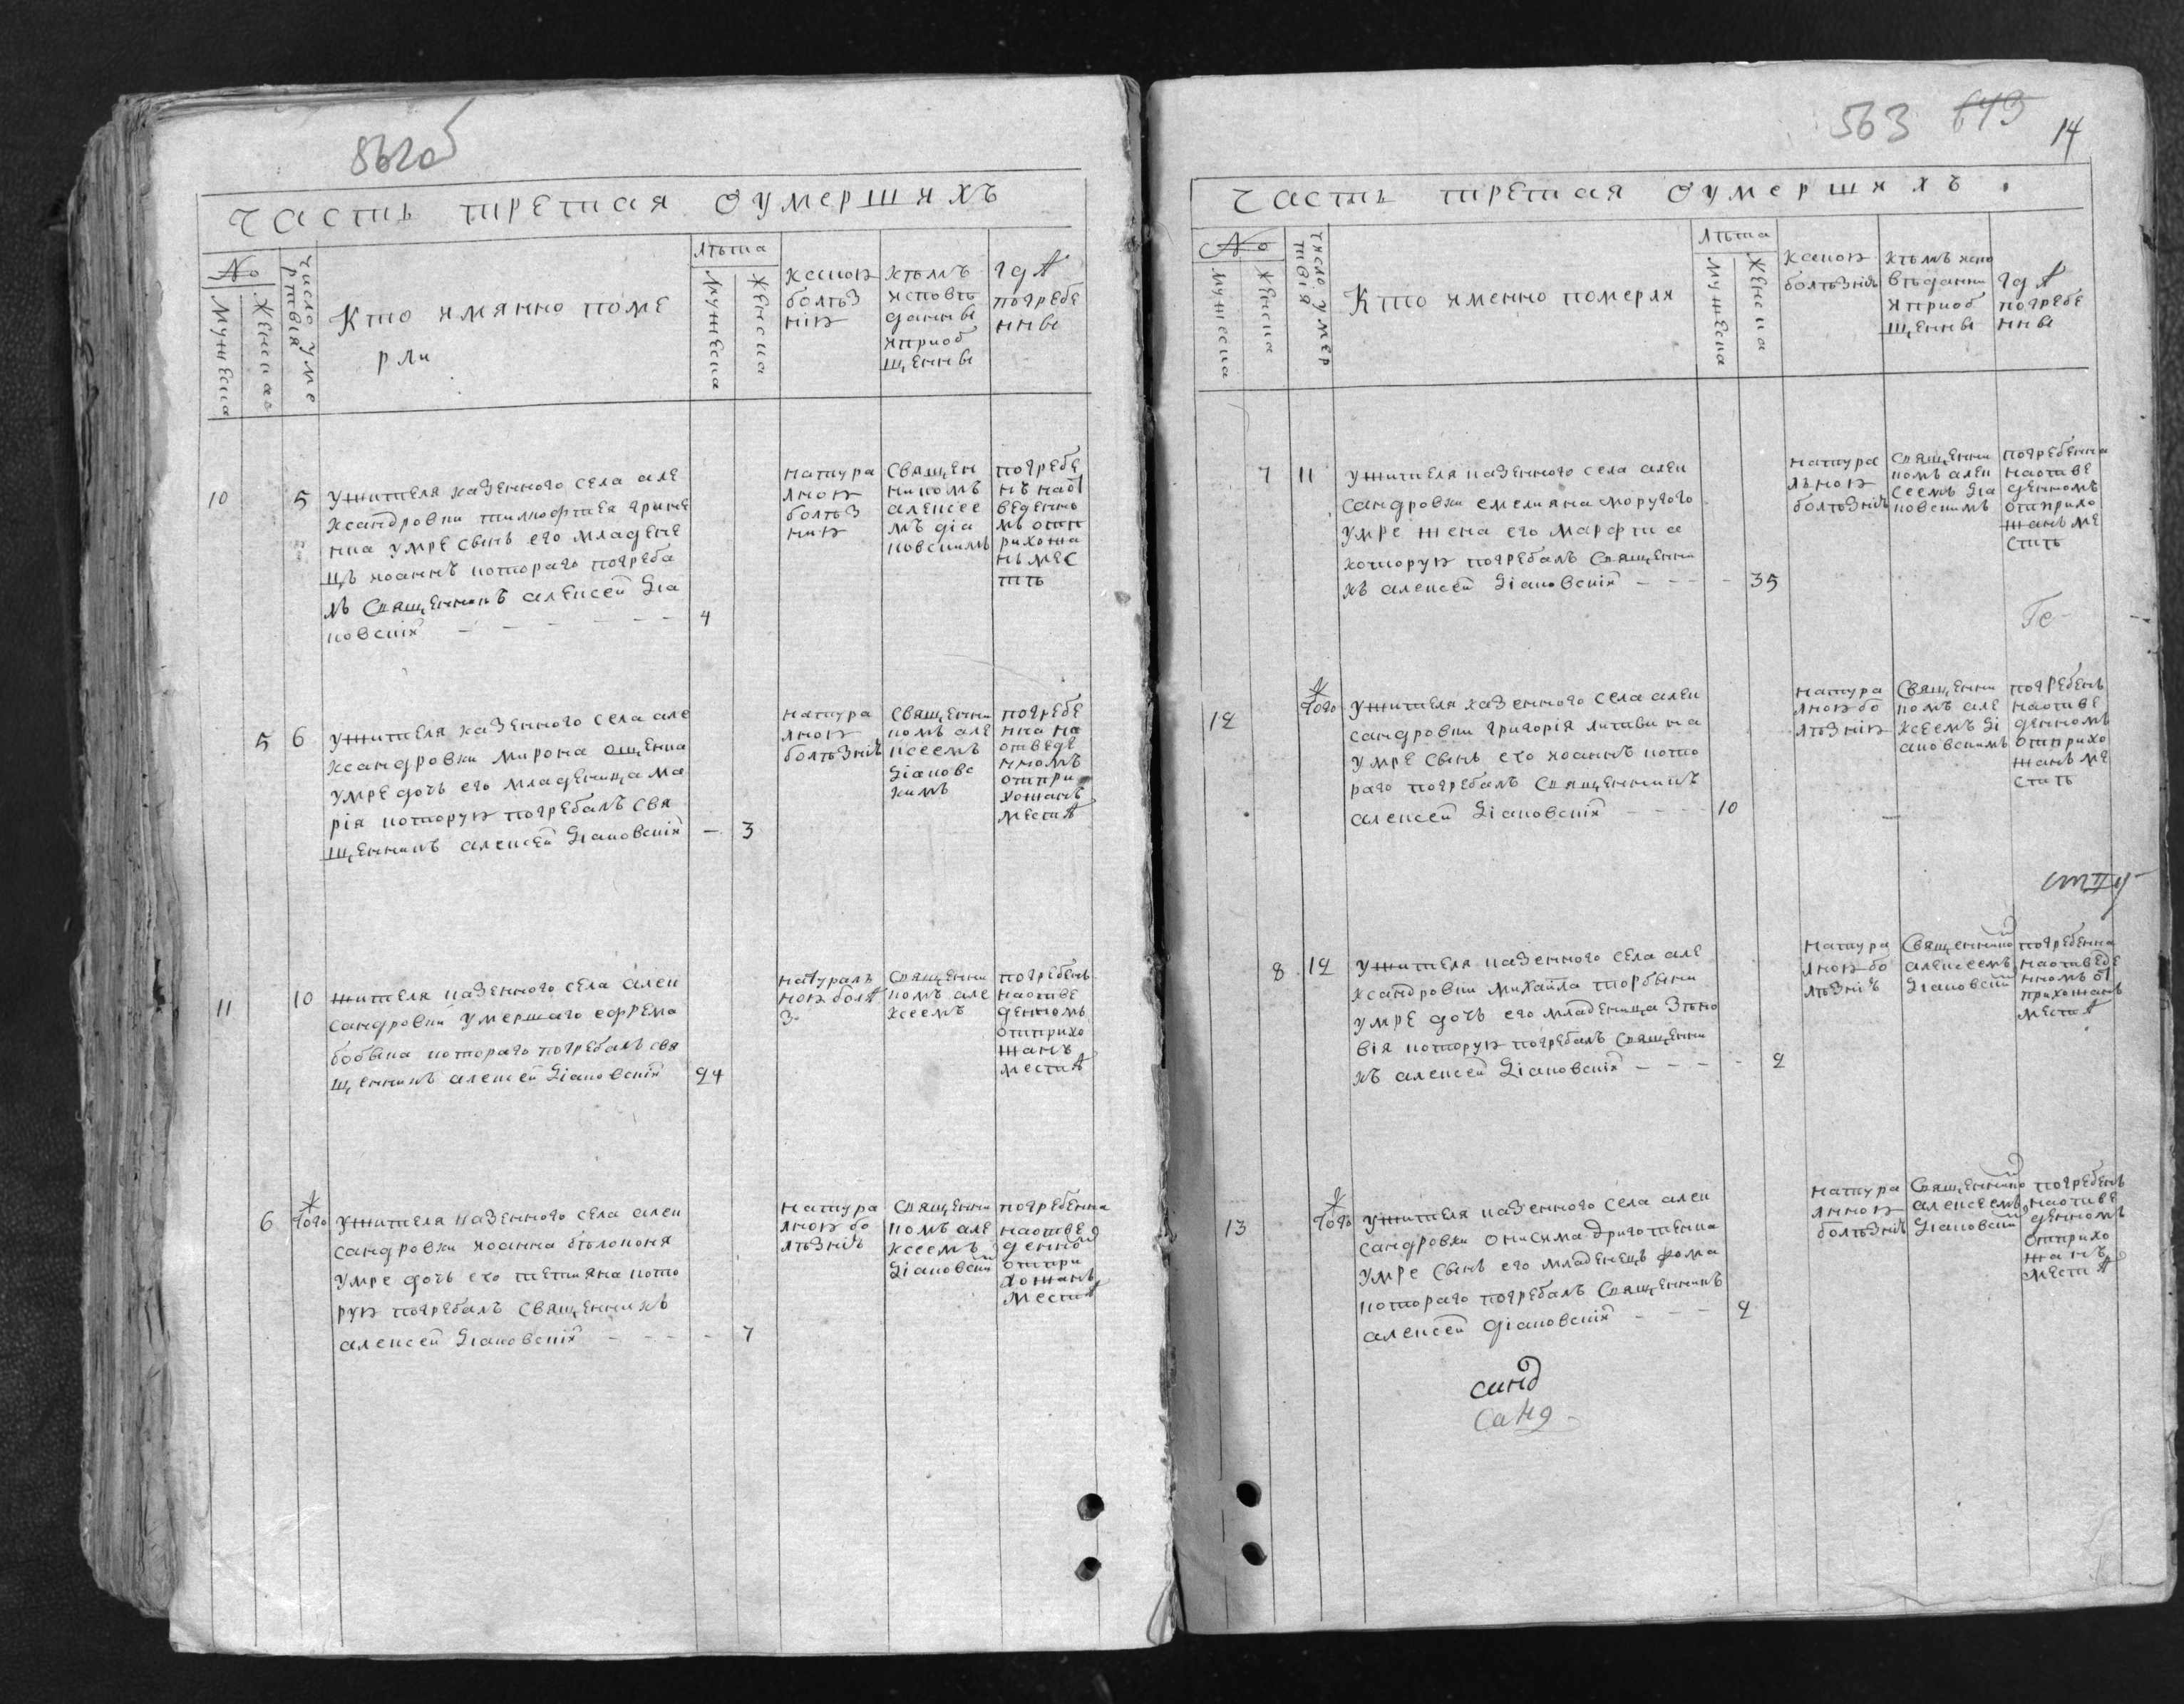 562об
часть третая оумершихъ
№
мужеска
женска
число умертвія
Кто имянно поме
рли
лѣта
мужеска
женска
какою
болѣз
нію
кѣмъ
исповѣ
данны
иприоб
щенны
гдѣ
погребе
нны
10
5
Ужителя казенного села але
ксандровки тимофтея грине
нка умре сынъ его младене
цъ иоаннъ котораго погреба
лъ священникъ алексей Діа
ковскій
4
натура
лною
болѣз
нию
священ
никомъ
алексее
мъ діа
ковскимъ
погребе
нъ наот
веденно
мъ отп
рихожа
нъ мес
тѣ
5
6
ужителя казенного села але
ксандровки мирона ощенка
умре дочь его младеница ма
рія которую погребалъ свя
щенникъ алексей Діаковскій
3
натура
лною
болѣзнію
священни
комъ але
ксеемъ
Діаковс
кимъ
погребе
нна на
отведе
нномъ
отпри
хожанъ
местѣ
11
10
жителя казенного села алек
сандровки умершаго ефрема
бобыка котораго погребалъ свя
щенникъ алексей Діаковскій
24
натураль
ною болѣ
з
священни
комъ але
ксеемъ
погребенъ
наотве
денномъ
отприхо
жанъ
местѣ
6
того
ужителя казенного села алек
сандровки иоанна бѣлоконя
умре дочь его тетияна кото
рую погребалъ священникъ
алексей Діаковскій
7
натура
лною бо
лѣзнію
священни
комъ але
ксеемъ
Діаковский
погребенна
наотвед
денной
отпри
хожанъ
местѣ
563 643
14
часть третая оумершихъ
№
мужеска
женска
число умертвія
Кто именно померли
лѣта
мужеска
женска
какою
болѣзнію
кѣмъ испо
вѣданни
иприоб
щенны
гдѣ
погребе
нны
7
11
ужителя казенного села алек
сандровки емелияна моругого
умре жена его марфта
которую погребалъ священни
къ алексей Діаковскій
35
натура
льною
болѣзнію
священни
комъ алек
сеемъ Діа
ковскимъ
погребенна
наотве
денномъ
отприхо
жанъ ме
стѣ
Ге
12
того
ужителя казенного села алек
сандровки григорія литвина
умре сынъ его иоаннъ кото
раго погребалъ священникъ
алексей Діаковскій
10
натура
лною бо
лѣзнію
священни
комъ але
ксеемъ Ді
аковскимъ
погребенъ
наотве
денномъ
отприхо
жанъ ме
стѣ
8
12
ужителя казенного села але
ксандровки михаила торбыни
умре дочь его младеница зѣно
вія которую погребалъ священни
къ алексей Діаковскій
2
натура
лною бо
лѣзніъ
священнико
алексеемъ
Діаковский
погребенна
наотведе
нномъ от
прихожанъ
местѣ
13
того
ужителя казенного села алек
сандровки онисима дриготенка
умре сынъ его младенецъ фома
котораго погребалъ священникъ
алексей діаковскій
2
натура
лною
болѣзнію
священнико
алексеемъ
Діаковский
погребенъ
наотве
денномъ
отприхо
жанъ
местѣ
санд
санд